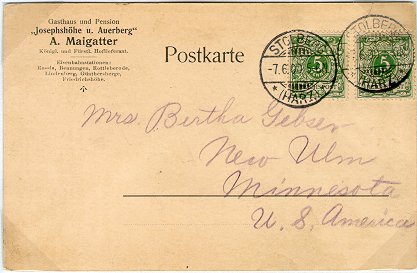 Gasthaus und Pension
„Josephshöhe u. Auerberg"
A. Maigatter
Königl. und Fürstl. Hoflieferant.
Eisenbahnstationen:
Rossla, Bennungen, Rottleberode,
Lindenberg, Günthersberge,
Friedrichshöhe.
Postkarte
STOLBERG
-7.6.
* (HARZ) *
5
STOLBERG
(HARZ)
5
Mrs. Bertha Gebser
New Ulm
Minnesota
U. S. America